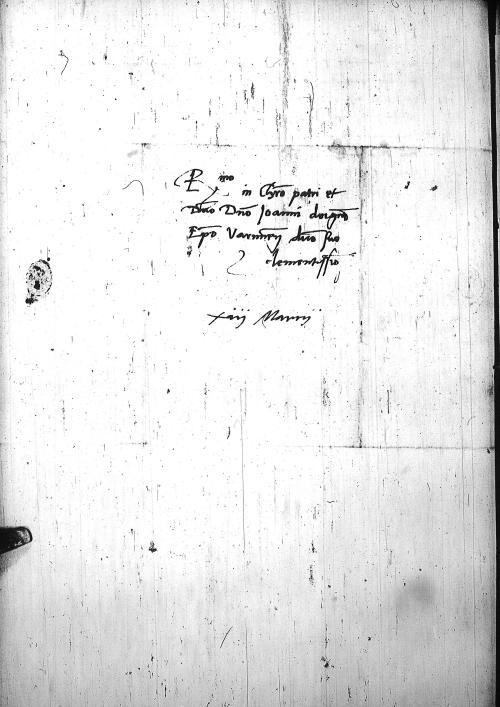 R mo
in Chro patri et
Dno Dno Joanni dei gra
Epo Varmien dno suo
clementissio
xiij Martij